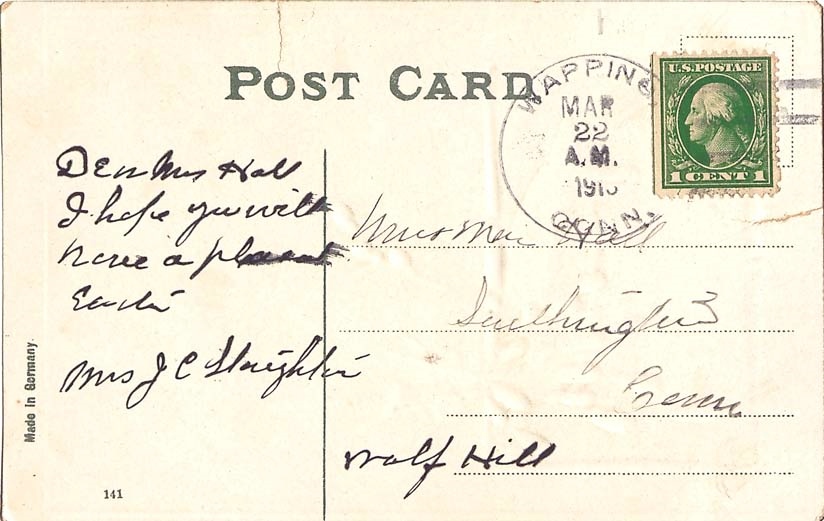 POST CARD
WAPPING
MAR
22
A.M.
CONN.
U.S. POSTAGE
1 CENT 1
Dear Mrs Hall
I hope you will
have a pleasant
Easter
Mrs J C Slaughter
Hall
Southington
Conn
Wolf Hill
Made in Germany.
141